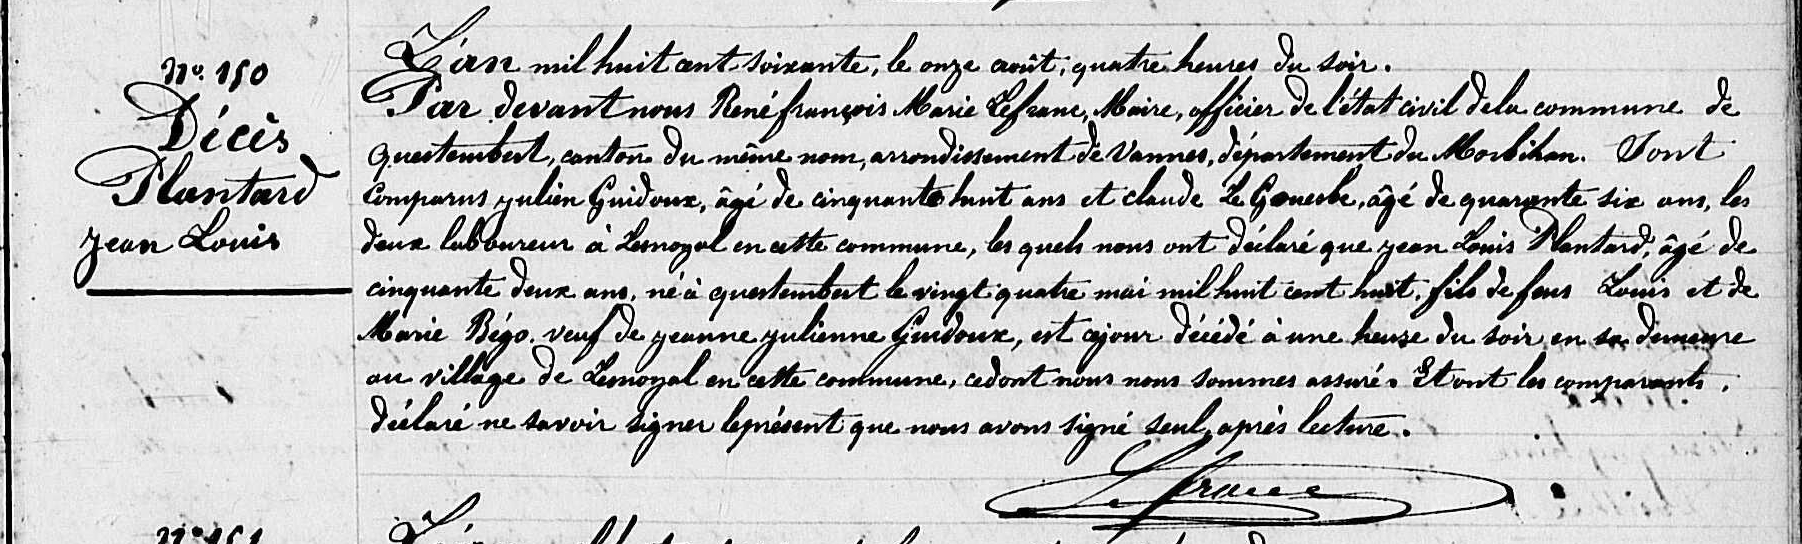 N° 150
Décès
Plantard
jean Louis
L'an mil huit cent soixante, le onze août, quatre heures du soir.
Par devant nous René françois Marie Lefranc, Maire, officier de l'état civil dela commune de
questembert, canton du même nom, arrondissement de Vannes, département du Morbihan. Sont
comparus julien Guidoux, âgé de cinquante huit ans et claude Le Gouesbe, âgé de quarante six ans, les
deux laboureur à Lesnoyal en cette commune, les quels nous ont déclaré que jean Louis Plantard, âgé de
cinquante deux ans, né à questembert le vingt quatre mai mil huit cent huit, fils de feus Louis et de
Marie Bégo. veuf de jeanne julienne Guidoux, est cejour décédé à une heure du soir en sa demeure
au village de Lesnoyal en cette commune, cedont nous nous sommes assuré. Et ont les comparants,
déclaré ne savoir signer leprésent que nous avons signé seul, après lecture.
Lefranc
N° 151